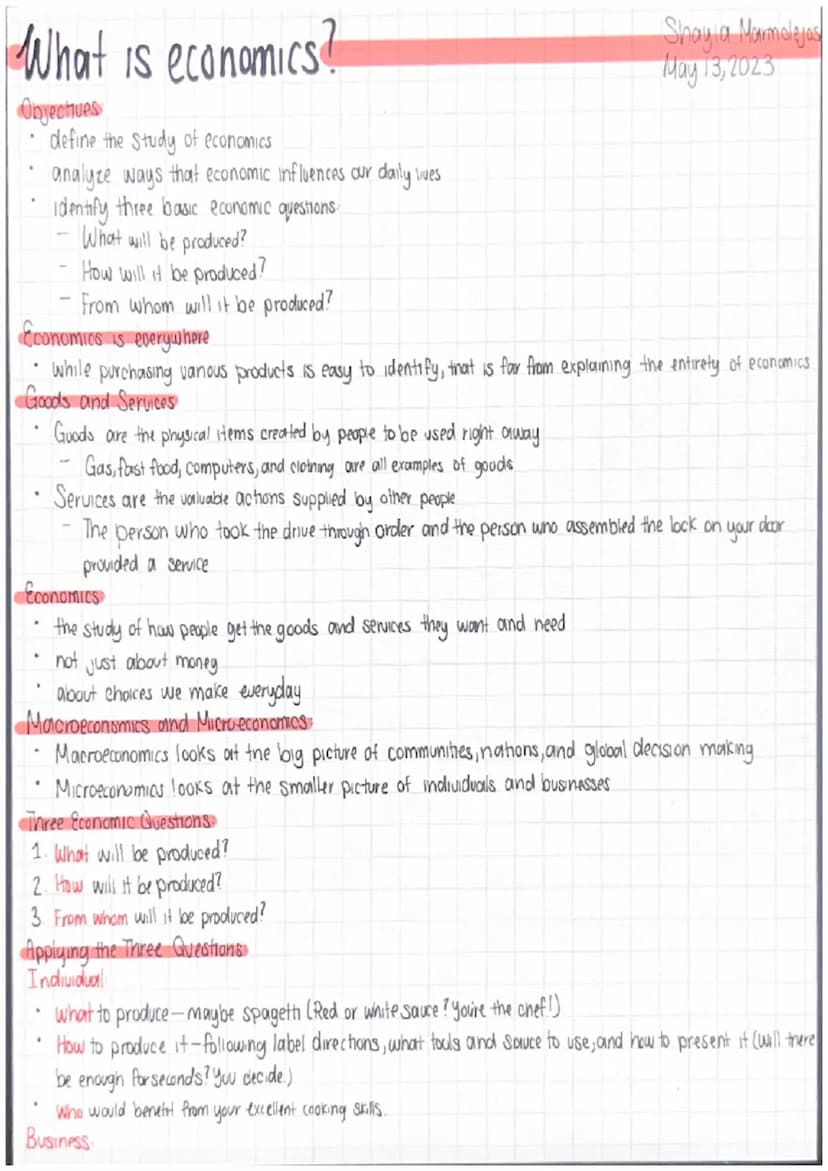 What is economics?
Shayla Marmolejos
May 13, 2023
Objectives:
• define the study of economics
• analyze ways that economic influences our daily lives
• identify three basic economic questions:
- What will be produced?
- How will it be produced?
- From whom will it be produced?
Economics is everywhere
• while purchasing various products is easy to identify, that is far from explaining the entirety of economics
Goods and Services
• Goods are the physical items created by people to be used right away
- Gas, fast food, computers, and clothing are all examples of goods
• Services are the valuable actions supplied by other people
- The person who took the drive-through order and the person who assembled the lock on your door
provided a service
Economics
• the study of how people get the goods and services they want and need
• not just about money
• about choices we make everyday
Macroeconomics and Microeconomics:
• Macroeconomics looks at the big picture of communities, nations, and global decision making
• Microeconomics looks at the smaller picture of individuals and businesses
Three Economic Questions:
1. What will be produced?
2. How will it be produced?
3. From whom will it be produced?
Applying the Three Questions
Individual:
• What to produce – maybe spagetti (Red or white sauce? You're the chef!)
• How to produce it – following label directions, what tools and sauce to use, and how to present it (will there
be enough for seconds? You decide.)
• Who would benefit from your excellent cooking skills.
Business: